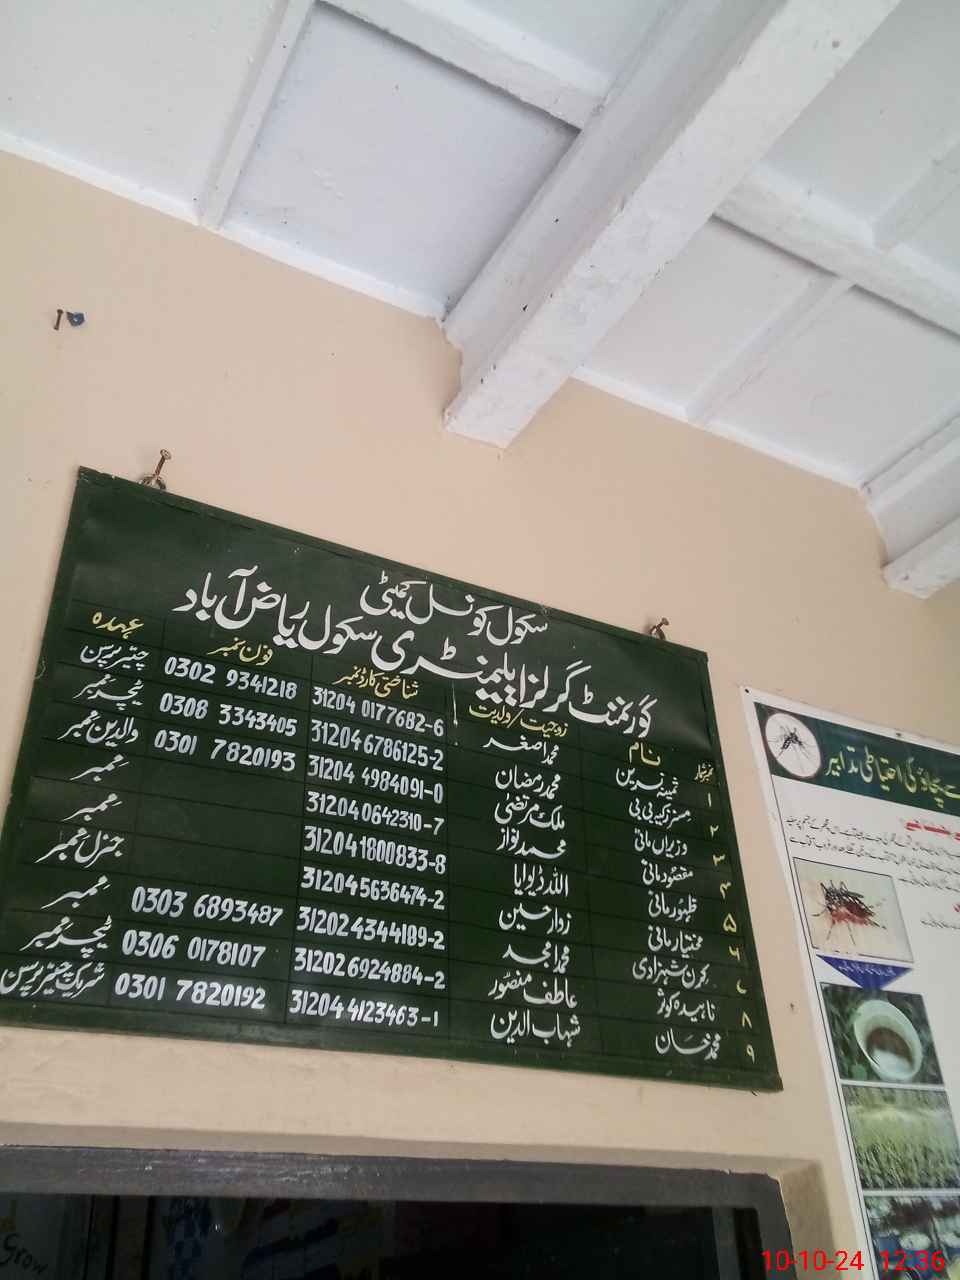 سکول کونسل کمیٹی
گورنمنٹ گرلز ایلیمنٹری سکول ریاض آباد
نمبرشمار نام زوجیت/ولدیت شناختی کارڈ نمبر فون نمبر عہدہ
۱ ثمینہ نسرین محمد اصغر 31204 0177682-6 0302 9341218 چیئرپرسن
۲ مسز زکیہ بی بی محمد رمضان 31204 6786125-2 0308 3343405 ٹیچر ممبر
۳ وزیراں مائی ملک مرتضیٰ 31204 4984091-0 0301 7820193 والدین ممبر
۴ مقصود مائی محمد نواز 31204 0642310-7 ممبر
۵ ظہور مائی اللہ ڈیوایا 31204 1800833-8 ممبر
۶ مختیار مائی زوار حسین 31204 5636474-2 جنرل ممبر
۷ کرن شہزادی محمد امجد 31202 4344189-2 0303 6893487 ممبر
۸ ناہیدہ کوثر عاطف منصور 31202 6924884-2 0306 0178107 ٹیچر ممبر
۹ محمد خان شہاب الدین 31204 4123463-1 0301 7820192 شریک چیئرپرسن
سے بچاؤ کی احتیاطی تدابیر
Grow
10-10-24 12:36